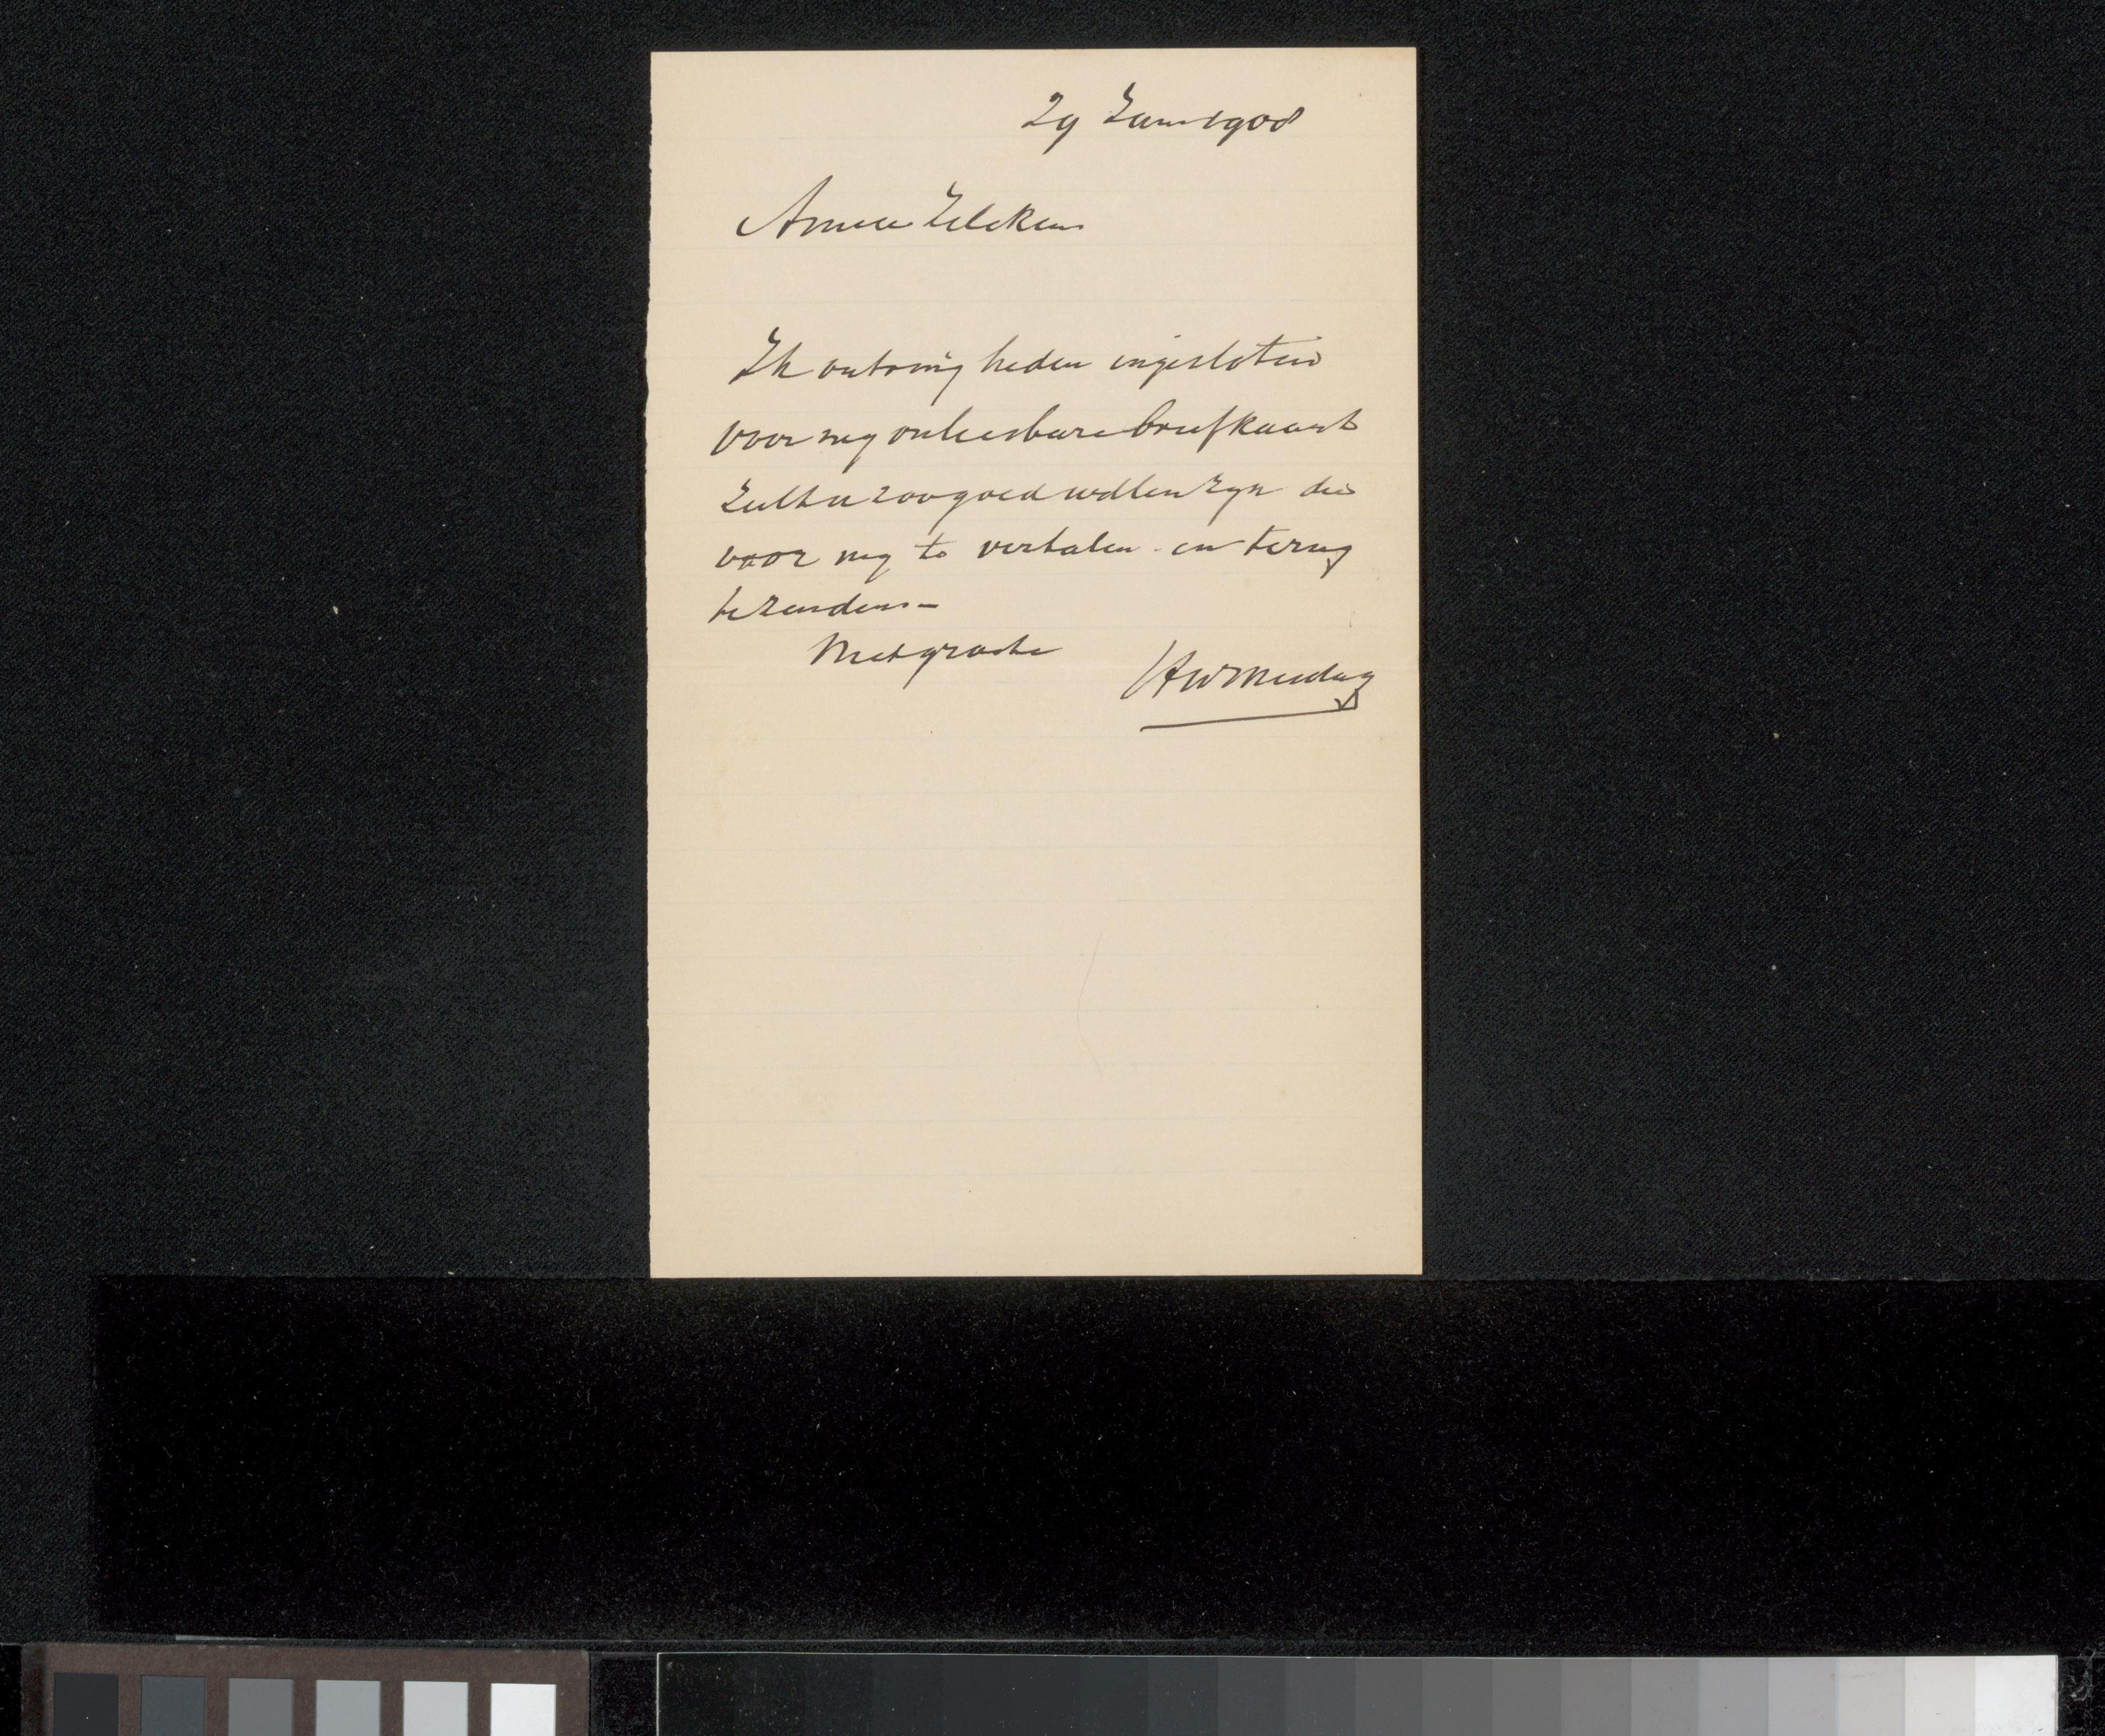 29 Juni 1908
Amice Zilcken
Ik ontving heden ingesloten
voor my onleesbare briefkaart
Zult u zoo goed willen zyn die
voor my te vertalen en terug
te zenden -
Met groete
HWMesdag